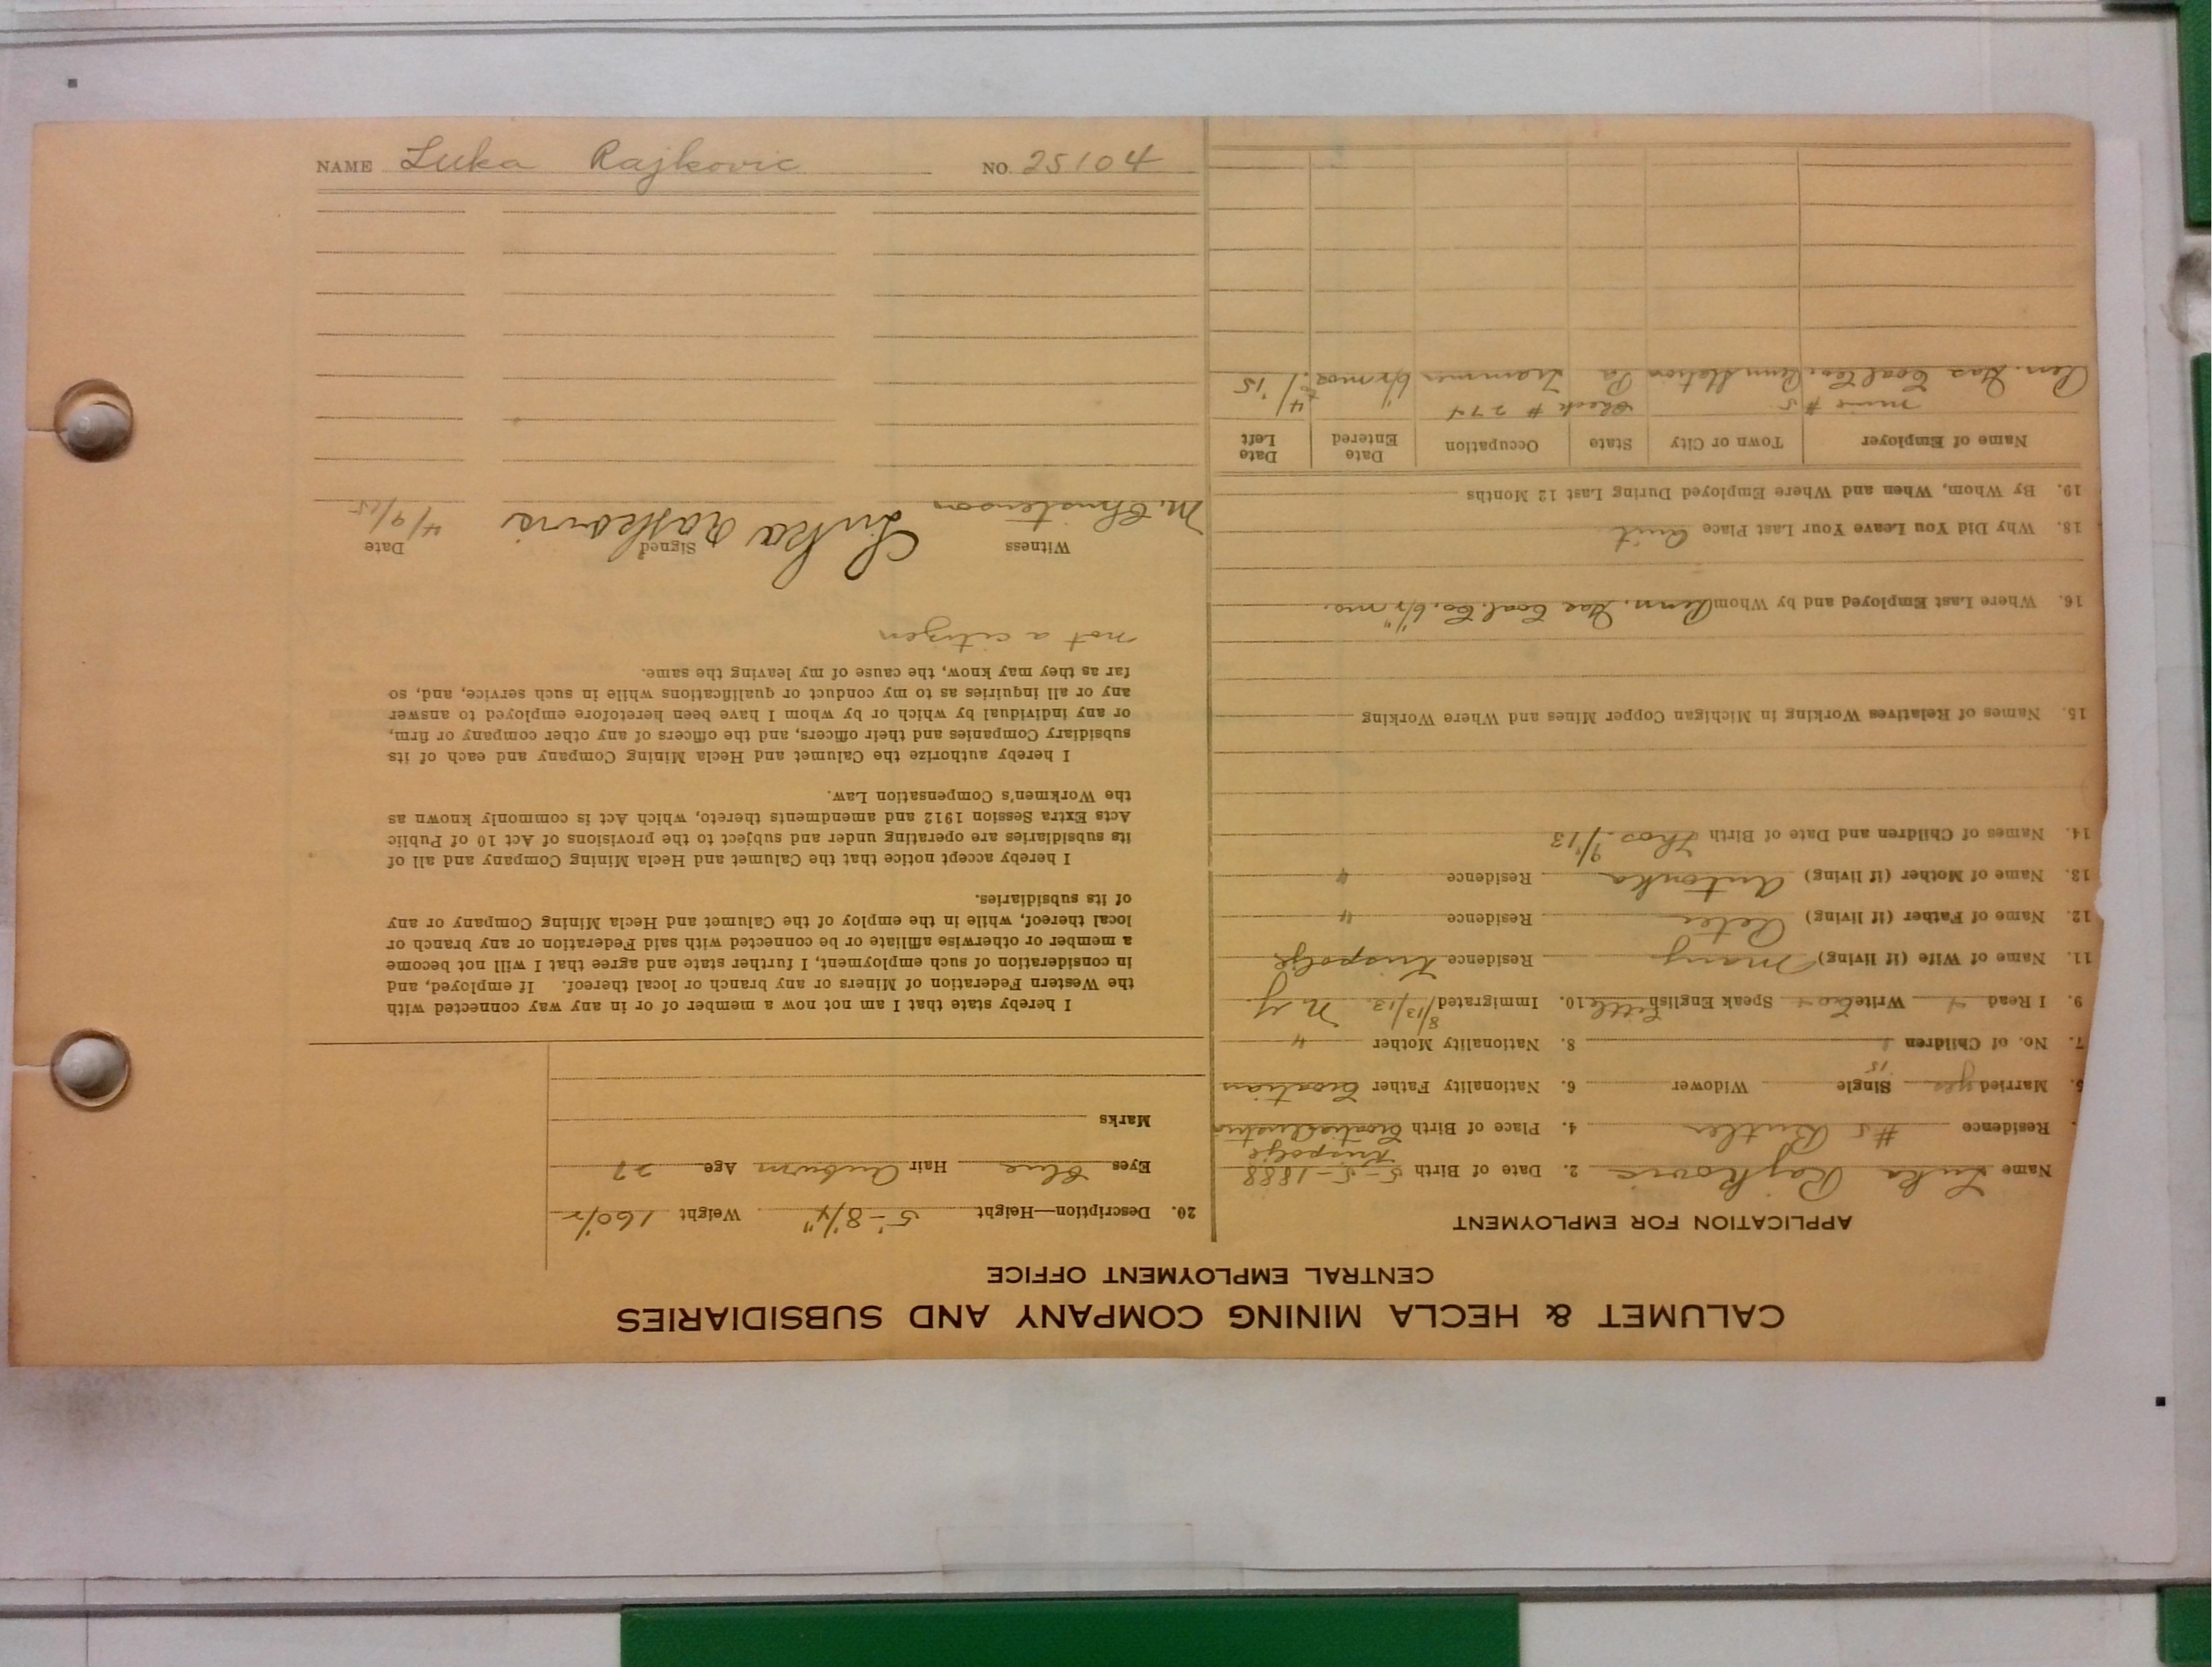 NAME Luka Rajkovic NO. 25104
CALUMET & HECLA MINING COMPANY AND SUBSIDIARIES
CENTRAL EMPLOYMENT OFFICE
APPLICATION FOR EMPLOYMENT
Name Luka Rajkovic 2. Date of Birth 5-5-1888
Residence #5 Butler 4. Place of Birth Croatia Austria
5. Married yes Single Widower 6. Nationality Father Croatian
15
7. No. of Children 1 8. Nationality Mother "
9. I Read " Write Croat Speak English Little 10. Immigrated 8/13/12 N.Y.
11. Name of Wife (if living) Mary Residence
12. Name of Father (if living) Peter Residence "
13. Name of Mother (if living) Antonka Residence "
14. Names of Children and Date of Birth Thos.
15. Names of Relatives Working in Michigan Copper Mines and Where Working
16. Where Last Employed and by Whom Penn. Gas Coal Co. 6 1/2 mo.
18. Why Did You Leave Your Last Place Quit
19. By Whom, When and Where Employed During Last 12 Months
Name of Employer Town or City State Occupation Date Entered Date Left
Mine #5 Check # 274
Penn. Gas Coal Co. Penn Station Pa Trammer 6 1/2 mos. 4/1/15
20. Description—Height 5-8 1/4" Weight 160 1/2
Eyes Blue Hair Auburn Age 27
Marks
I hereby state that I am not now a member of or in any way connected with
the Western Federation of Miners or any branch or local thereof. If employed, and
in consideration of such employment, I further state and agree that I will not become
a member or otherwise affiliate or be connected with said Federation or any branch or
local thereof, while in the employ of the Calumet and Hecla Mining Company or any
of its subsidiaries.
I hereby accept notice that the Calumet and Hecla Mining Company and all of
its subsidiaries are operating under and subject to the provisions of Act 10 of Public
Acts Extra Session 1912 and amendments thereto, which Act is commonly known as
the Workmen's Compensation Law.
I hereby authorize the Calumet and Hecla Mining Company and each of its
subsidiary Companies and their officers, and the officers of any other company or firm,
or any individual by which or by whom I have been heretofore employed to answer
any or all inquiries as to my conduct or qualifications while in such service, and, so
far as they may know, the cause of my leaving the same.
not a citizen
Witness Signed Date
M. Christenson Luka Rajkovic 4/9/15